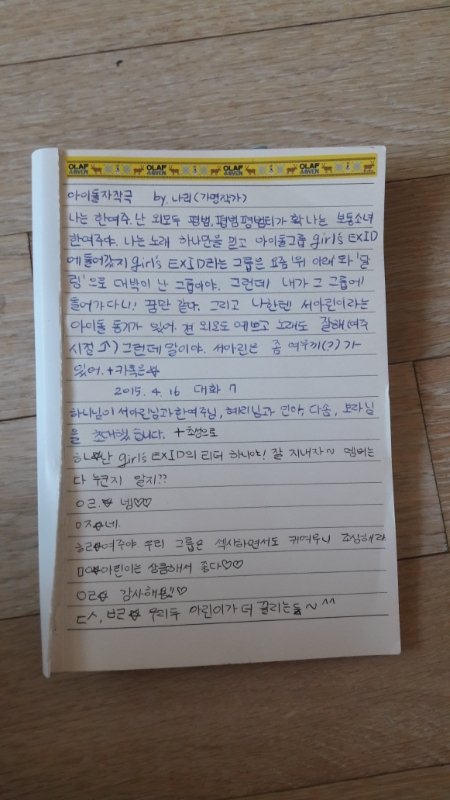 OLAF &SVEN OLAF &SVEN OLAF &SVEN OLAF &SVEN
아이돌자작극 by 나리(가명작가)
나는 한여주. 난 외모두 평범, 평범 평범티가 확 나는 보통소녀
한여주야. 나는 노래 하나만을 믿고 아이돌그룹 girl's EXID
에들어갔지 girl's EXID라는 그룹은 요즘 '위 아래' 와 '달
링'으로 대박이 난 그룹이야. 그런데! 내가 그 그룹에
들어가다니! 꿈만 같다. 그리고 나한텐 서아린이라는
아이돌 동기가 있어. 걘 외모도 예쁘고 노래도 잘해(여주
시점↗) 그런데 말이야. 서아린은 좀 여우끼(?)가
있어. +카톡은☆
2015. 4. 16 대화 ㄱ
하나님이 서아린님과 한여주님, 혜리님과 민아, 다솜, 보라님
을 초대했습니다. +초성으로
하나☆난 girl's EXID의 리더 하나야! 잘 지내자~ 멤버는
다 누군지 알지??
ㅇㄹ☆ 넵♡♡
ㅇㅈ☆네.
ㅎㄹ☆여주야. 우리 그룹은 섹시하면서도 귀여우니 조심해라
ㅁㅇ☆아린이는 상큼해서 좋다♡♡
ㅇㄹ☆ 감사해용!!♡
ㄷㅅ, ㅂㄹ☆ 우리두 아린이가 더 끌리는듯~ ^^